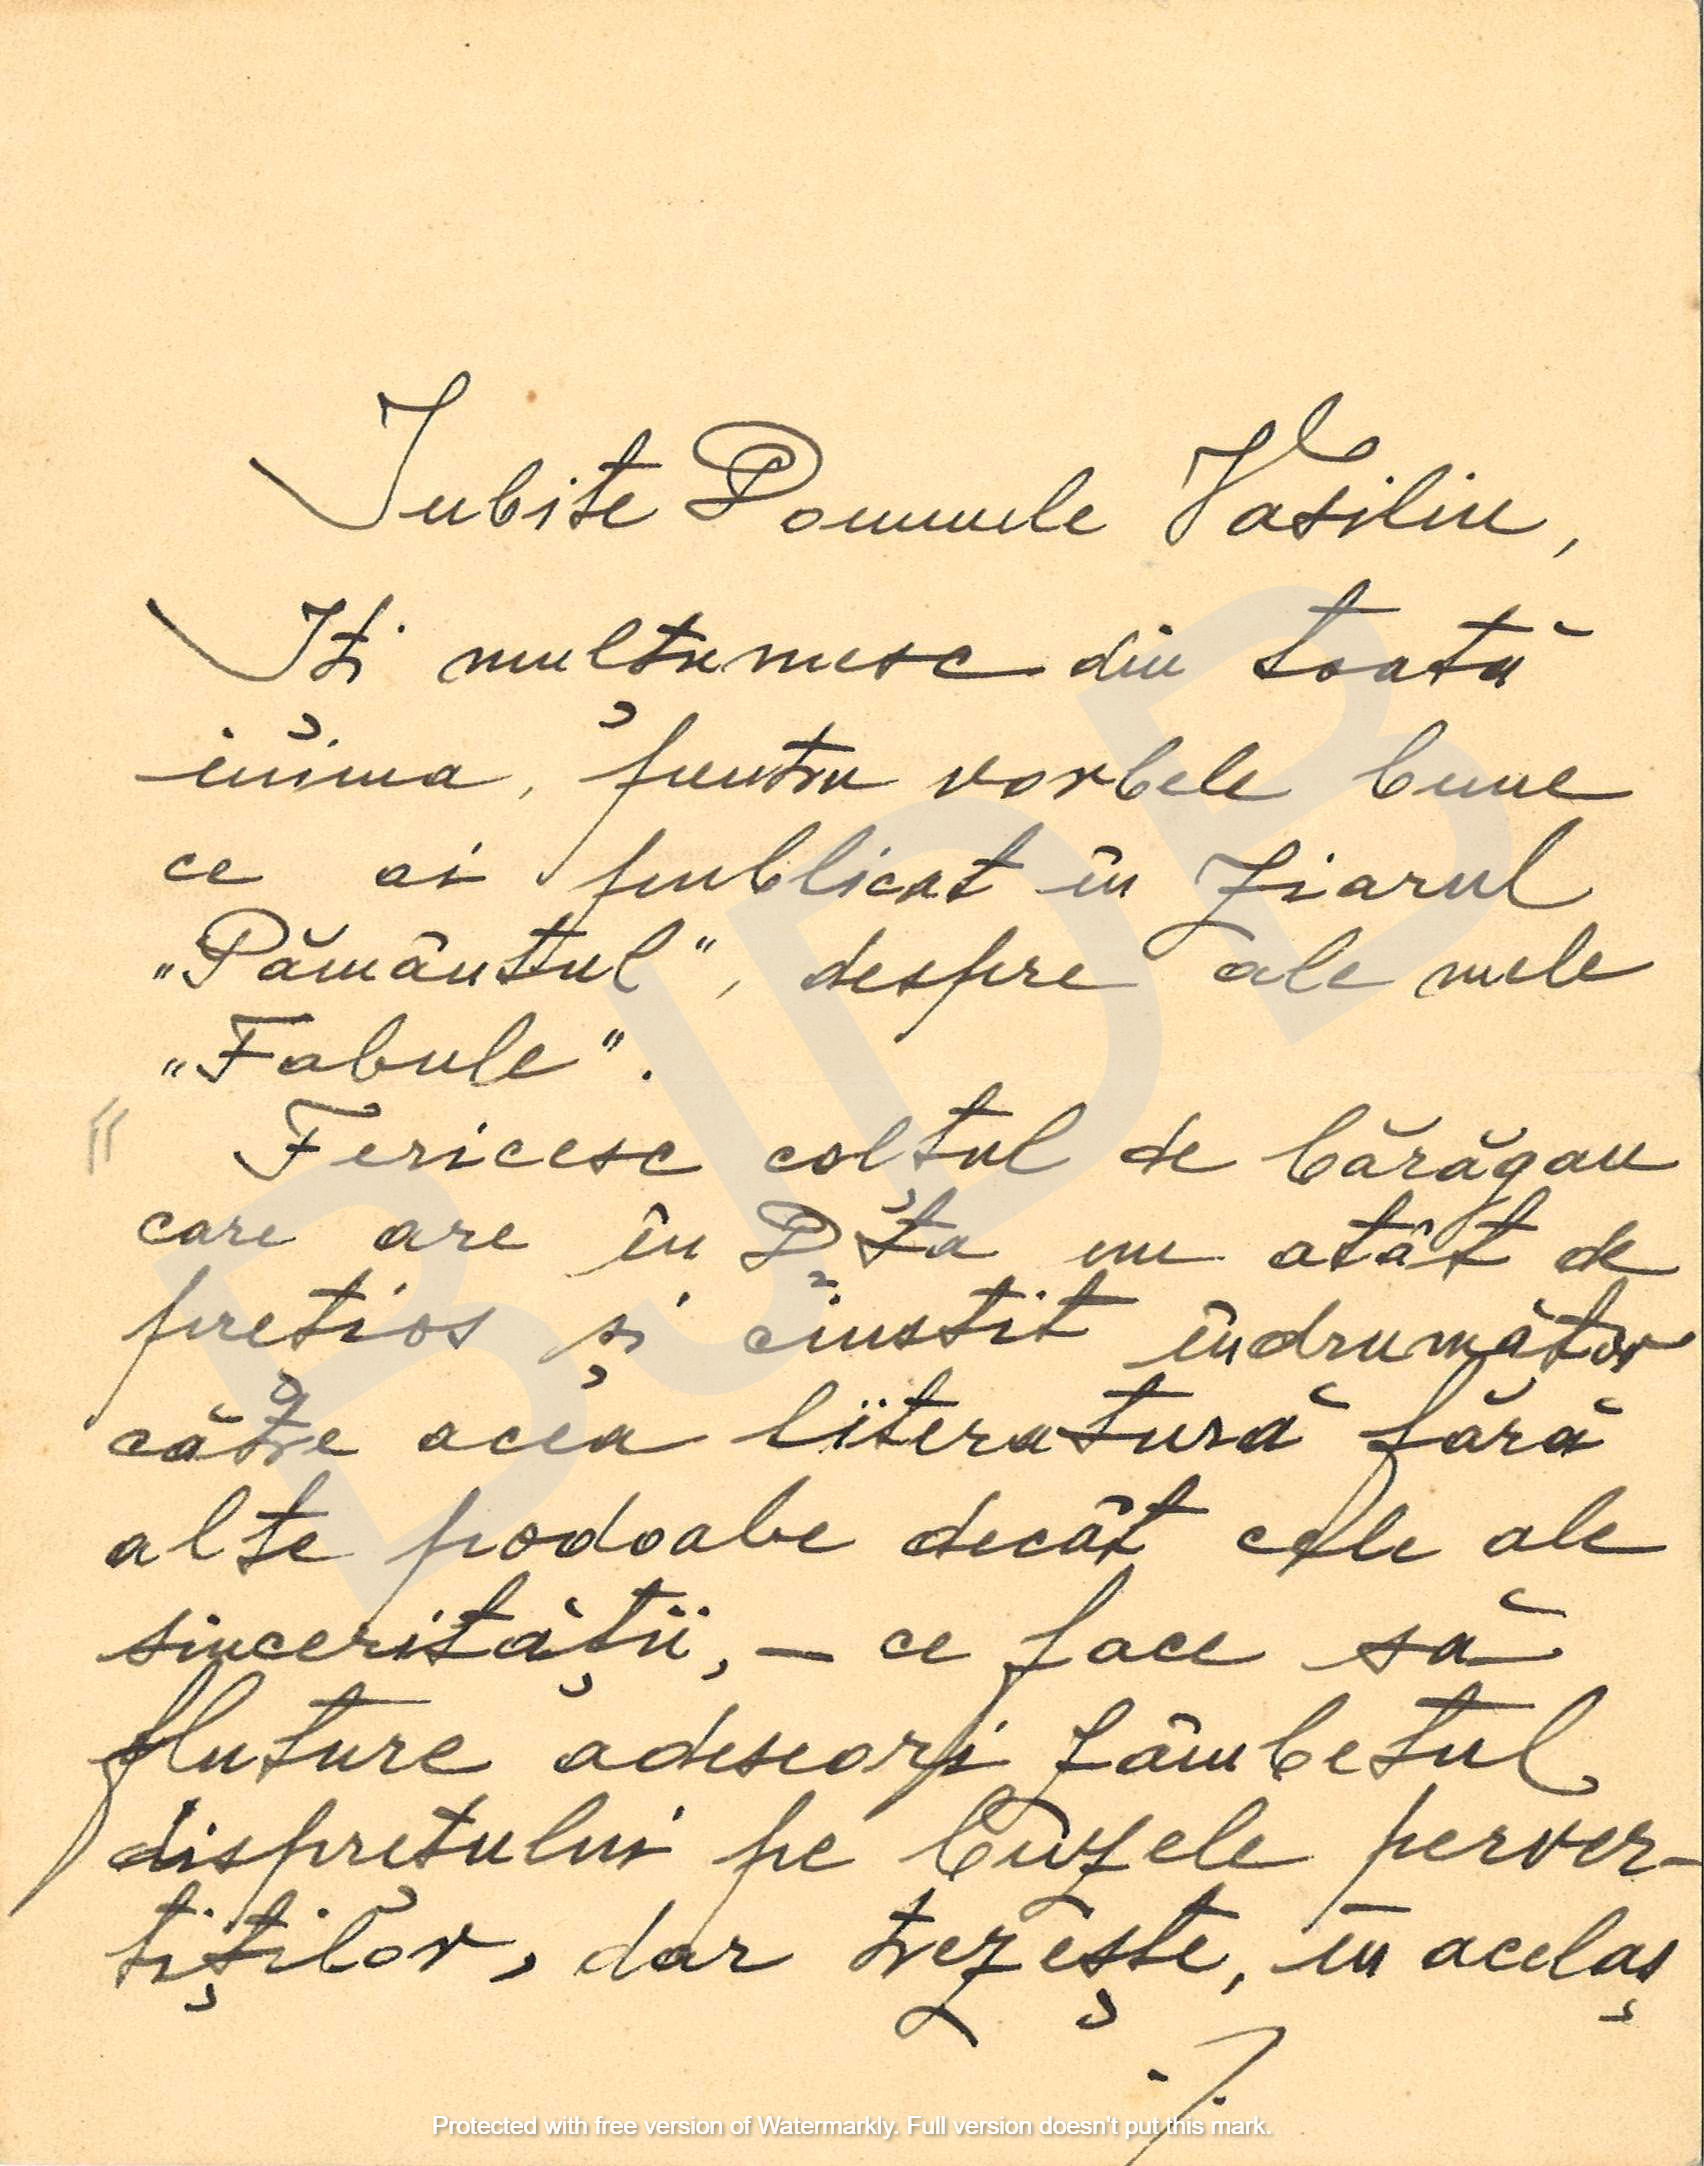 Iubite Domnule Vasiliu,
Iți mulțumesc din toată
inima, pentru vorbele bune
ce ai publicat în ziarul
„Pământul", despre ale mele
„Fabule".
Fericesc colțul de bărăgan
care are în D ta un atât de
prețios și cinstit îndrumător
către acea literatură fără
alte podoabe decât cele ale
sincerității, — ce face să
fluture adeseori zâmbetul
disprețului pe buzele perver-
tiților, dar trezește, în acelaș
./.
BJDB
Protected with free version of Watermarkly. Full version doesn't put this mark.